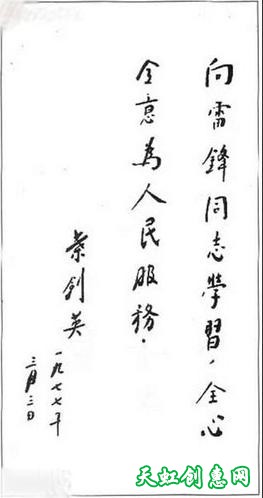 向雷鋒同志學習,全心
全意為人民服務.
葉劍英
一九七七年
三月三日
天虹创意网